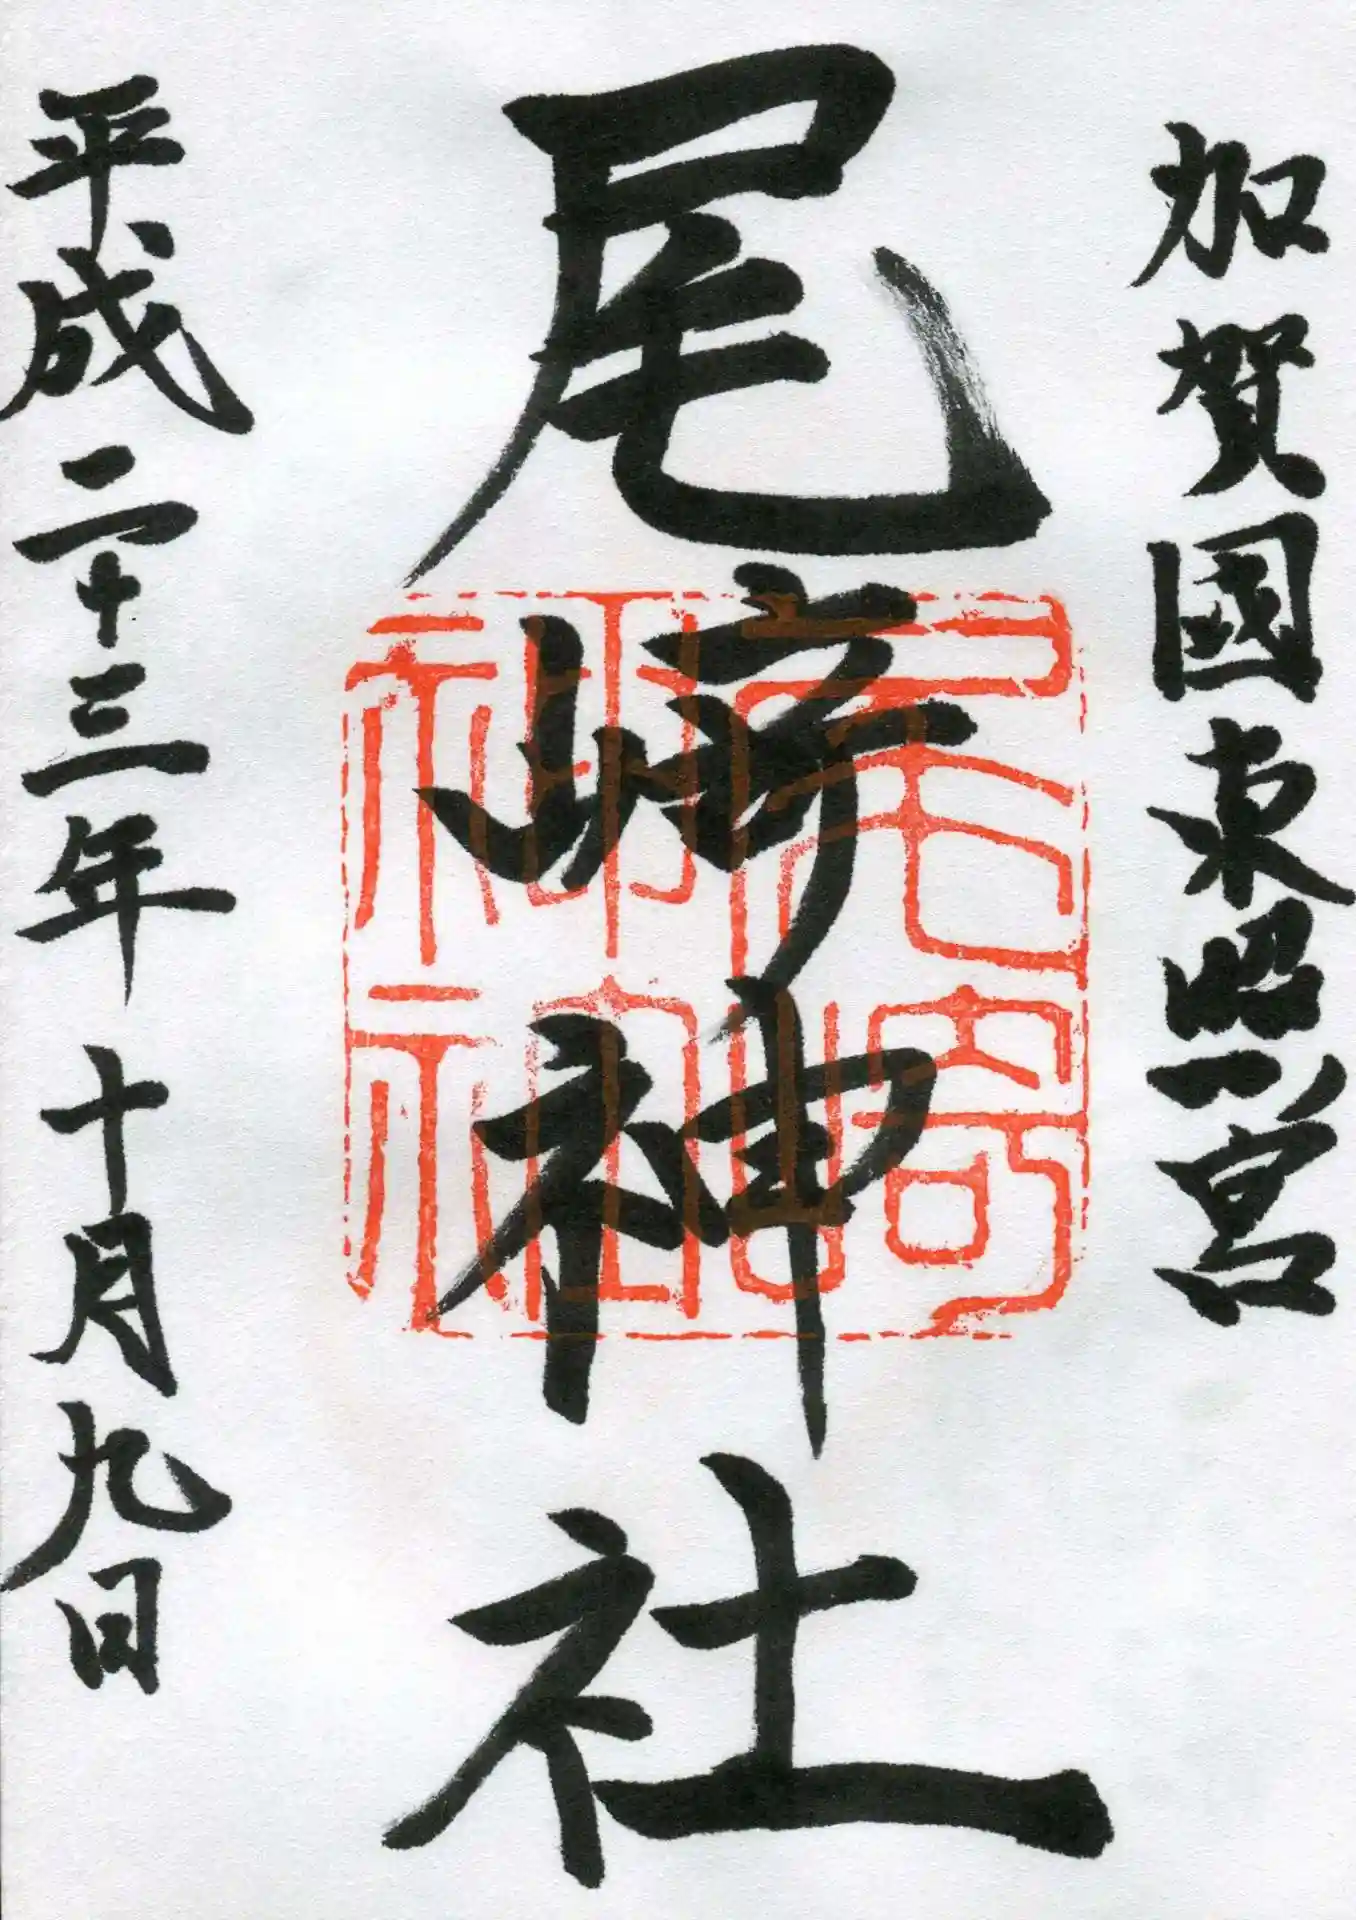 加賀國東照宮
尾崎神社
尾崎
神社
平成二十三年十月九日